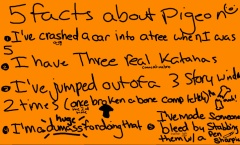 5 facts about Pigeon
• I've crashed a car into a tree when I was 5
• I have Three real Katanas
• I've jumped out of a 3 Story window
2 times (once broken a bone completely)
• I'm a huge dumass for doing that
• I've made Someone
bleed by Stabbing
them w/ a Pen